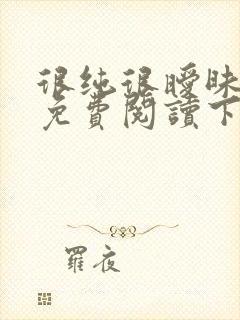 很纯很暧昧
免費閱讀下
羅夜